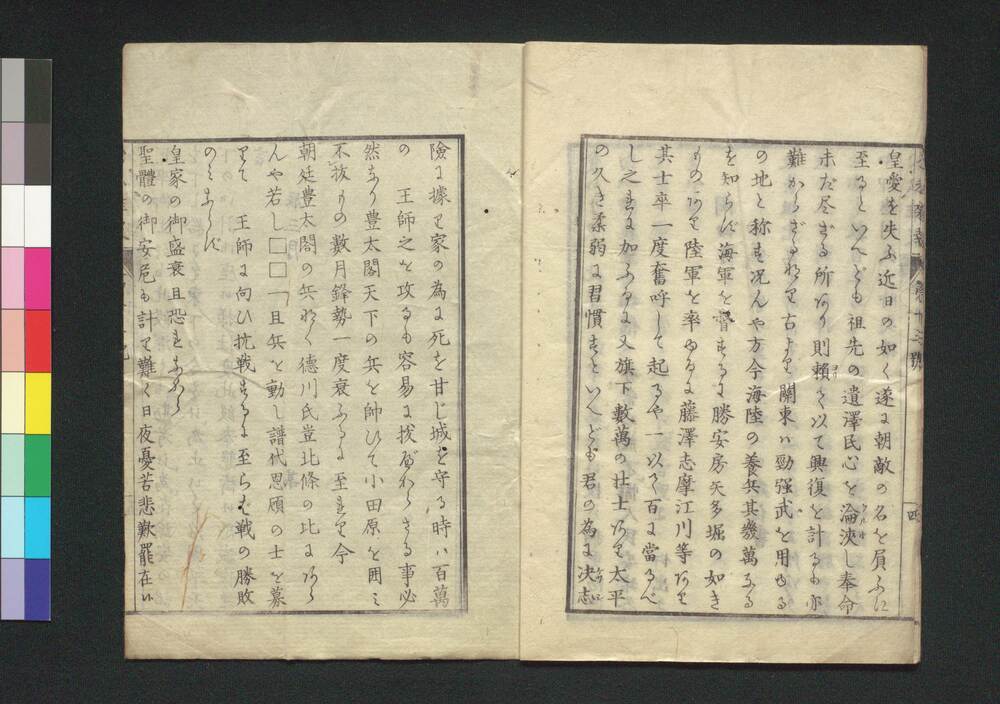 皇愛を失ふ近日の如く遂に朝敵の名を負ふに
至るといへども祖先の遺澤民心を淪浹し奉命
未だ尽ざる所あり則頼て以て興復を計るも亦
難からざるなり古より關東は勁强武を用ゆる
の地と称す况んや方今海陸の養兵其幾萬なる
を知らず海軍を督するに勝安房矢多堀の如き
ものあり陸軍を率ゆるに藤澤志摩江川等あり
其士卒一度奮呼して起るや一以て百に當るべ
し之に加ふるに又旗下數萬の壮士あり太平
の久き柔弱に習慣すといへども君の為に决志
四
險に據り家の為に死を甘じ城を守る時は百萬
の 王師之を攻るも容易に拔べからざる事必
然なり豊太閤天下の兵を帥ひて小田原を囲み
不拔もの數月鋒勢一度衰ふるに至れり今
朝廷豊太閤の兵なく德川氏豈北條の比にあら
んや若し□□「且兵を動し譜代恩顧の士を募
りて 王師に向ひ抗戦するに至らむ戦の勝敗
のミならず
皇家の御盛衰且恐るあら
聖體の御安危も計り難く日夜憂苦悲歎罷在候